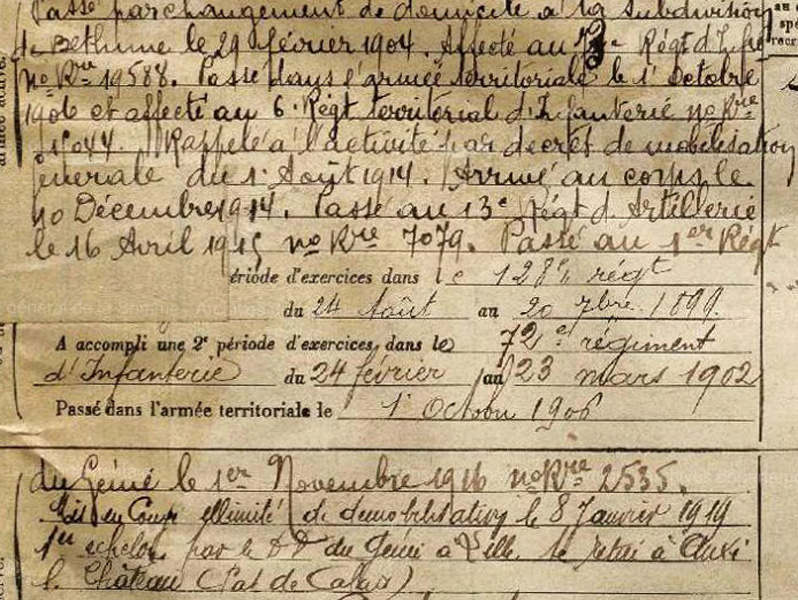 Passé par changement de domicile à la subdivision
de Béthune le 29 février 1904. Affecté au 73e Régt d'Infie
no Rre 19588. Passé dans l'armée territoriale le 1r Octobre
1906 et affecté au 6e Régt territorial d'Infanterie no Rre
15044. Rappelé à l'activité par décret de mobilisation
générale du 1r Août 1914. Arrivé au corps le
10 Décembre 1914. Passé au 13e Régt d'Artillerie
le 16 Avril 1915 no Rre 7079. Passé au 1er Régt
ériode d'exercices dans le 128e régt
du 24 Août au 20 7bre 1899.
A accompli une 2e période d'exercices dans le 72e régiment
d'Infanterie du 24 février au 23 mars 1902
Passé dans l'armée territoriale le 1r Octobre 1906
du Génie le 1er Novembre 1916 no Rre 2535.
Mis en Congé illimité de démobilisation le 8 Janvier 1919
1er échelon par le DD du Génie à Lille se retire à Auxi
le Château (Pas de Calais)